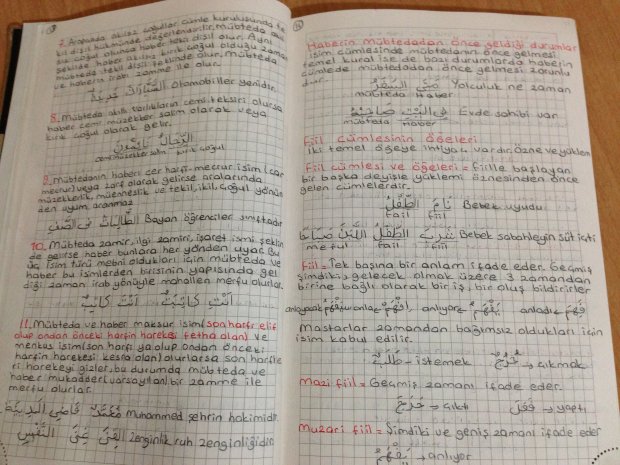 7. Arapçada akılsız çoğullar cümle kuruluşunda te
kil dişil hükmünde değerlendirilir. mübteda akıl
sız çoğul olunda haber tekil dişil olur. Aynı
şekilde haber akılsız kırık çoğul olduğu zaman
mübteda tekil dişil şeklinde olur. mübteda
ve haberin irabı zamme ile olur.
السَّيَّارَاتُ جَدِيدَةٌ Otomobiller yenidir.
8. Mübteda akıllı varlıkların cemi teksiri olursa
haber cemi müzekker salim olarak veya
kırık çoğul olarak gelir.
الرِّجَالُ نَائِمُونَ
cemi müzekker salim kırık çoğul
9. Mübtedanın haberi cer harfi-mecrur isim (car
mecrur) veya zarf olarak gelirse aralarında
müzekkerlik, müenneslik ve tekil, ikil, çoğul yönün
den uyum aranmaz
الطَّالِبَاتُ فِى الصَّفِّ Bayan öğrenciler sınıftadır
10. Mübteda zamir, ilgi zamiri, işaret ismi şeklin
de gelirse haber bunlara her yönden uyar. Bu
üç isim türü mebni oldukları için mübteda ve
haber bu isimlerden birisinin yapısında gel
diği zaman irab yönüyle mahallen merfu olurlar
أَنْتَ كَاتِبٌ أَنْتِ كَاتِبَةٌ
11. Mübteda ve haber maksur isim (son harfi elif
olup ondan önceki harfin harekesi fetha olan) ve
menkus isim (son harfi ya olup ondan önceki
harfin harekesi kesra olan) olurlarsa son harfle
ri harekeyi gizler. bu durumda mübteda ve
haber mukadder (varsayılan) bir zamme ile
merfu olurlar.
مُحَمَّدٌ قَاضِي الْمَدِينَةِ Muhammed şehrin hakimidir.
الْغِنَى غِنَى النَّفْسِ zenginlik ruh zenginliğidir
Haberin mübtedadan önce geldiği durumlar
isim cümlesinde mübtedanın önce gelmesi
temel kural ise de bazı durumlarda haberin
cümlede mübtedadan önce gelmesi zorunlu
dur.
مَتَى السَّفَرُ Yolculuk ne zaman
mübteda Haber
فِى الْبَيْتِ صَاحِبُهُ Evde sahibi var
mübteda Haber
Fiil Cümlesinin Öğeleri
İki temel öğeye ihtiyaç vardır. Özne ve yüklem
Fiil cümlesi ve öğeleri = Fiille başlayan
bir başka deyişle yüklemi öznesinden önce
gelen cümlelerdir.
نَامَ الطِّفْلُ Bebek uyudu
fail fiil
شَرِبَ الطِّفْلُ اللَّبَنَ صَبَاحًا Bebek sabahleyin süt içti
meful fail fiil
Fiil = Tek başına bir anlam ifade eder. Geçmiş
şimdiki, gelecek olmak üzere 3 zamandan
birine bağlı olarak bir iş, bir oluş bildirirler
فَهِمَ anladı يَفْهَمُ anlıyor
Mastarlar zamandan bağımsız oldukları için
isim kabul edilir.
طَلَبٌ → istemek خُرُوجٌ → çıkmak
Mazi fiil = Geçmiş zamanı ifade eder.
خَرَجَ → çıktı فَعَلَ → yaptı
Muzari fiil = Şimdiki ve geniş zamanı ifade eder
يَفْهَمُ → anlıyor